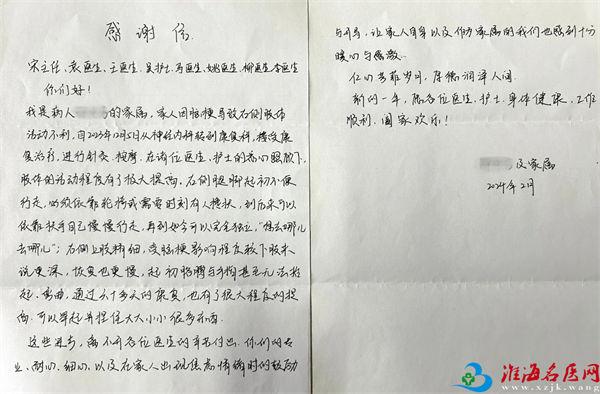 感谢信
宋主任、袁医生、王医生、吴护士、马医生、姚医生、柳医生、李医生
你们好！
我是病人的家属，家人因脑梗导致右侧肢体
活动不利，自2023年12月5日从神经内科转到康复科，接受康
复治疗，进行针灸、按摩，在诸位医生、护士的精心照顾下，
肢体的活动程度有了极大提高。右侧腿脚起初不便
行走，必须依靠轮椅或需要时刻有人搀扶，到后来可以
依靠扶手自己慢慢行走，再到如今可以完全独立，“想去哪儿
去哪儿”；右侧上肢精细，受脑梗影响程度较下肢来
说更深，恢复也更慢，起初胳膊与手指甚至无法抬
起、弯曲，通过六十多天的康复，也有了很大程度的提
高，可以举起并捏住大大小小很多东西。
这些进步，离不开各位医生的辛苦付出，你们的专
业、耐心、细心，以及在家人出现焦急情绪时的鼓励
与开导，让家人自身以及作为家属的我们也感到十分
暖心与感激。
仁心芳菲岁月，厚德润泽人间。
新的一年，愿各位医生、护士身体健康、工作
顺利、阖家欢乐！
及家属
2024年2月
淮海名医网
www.xzjk.wang